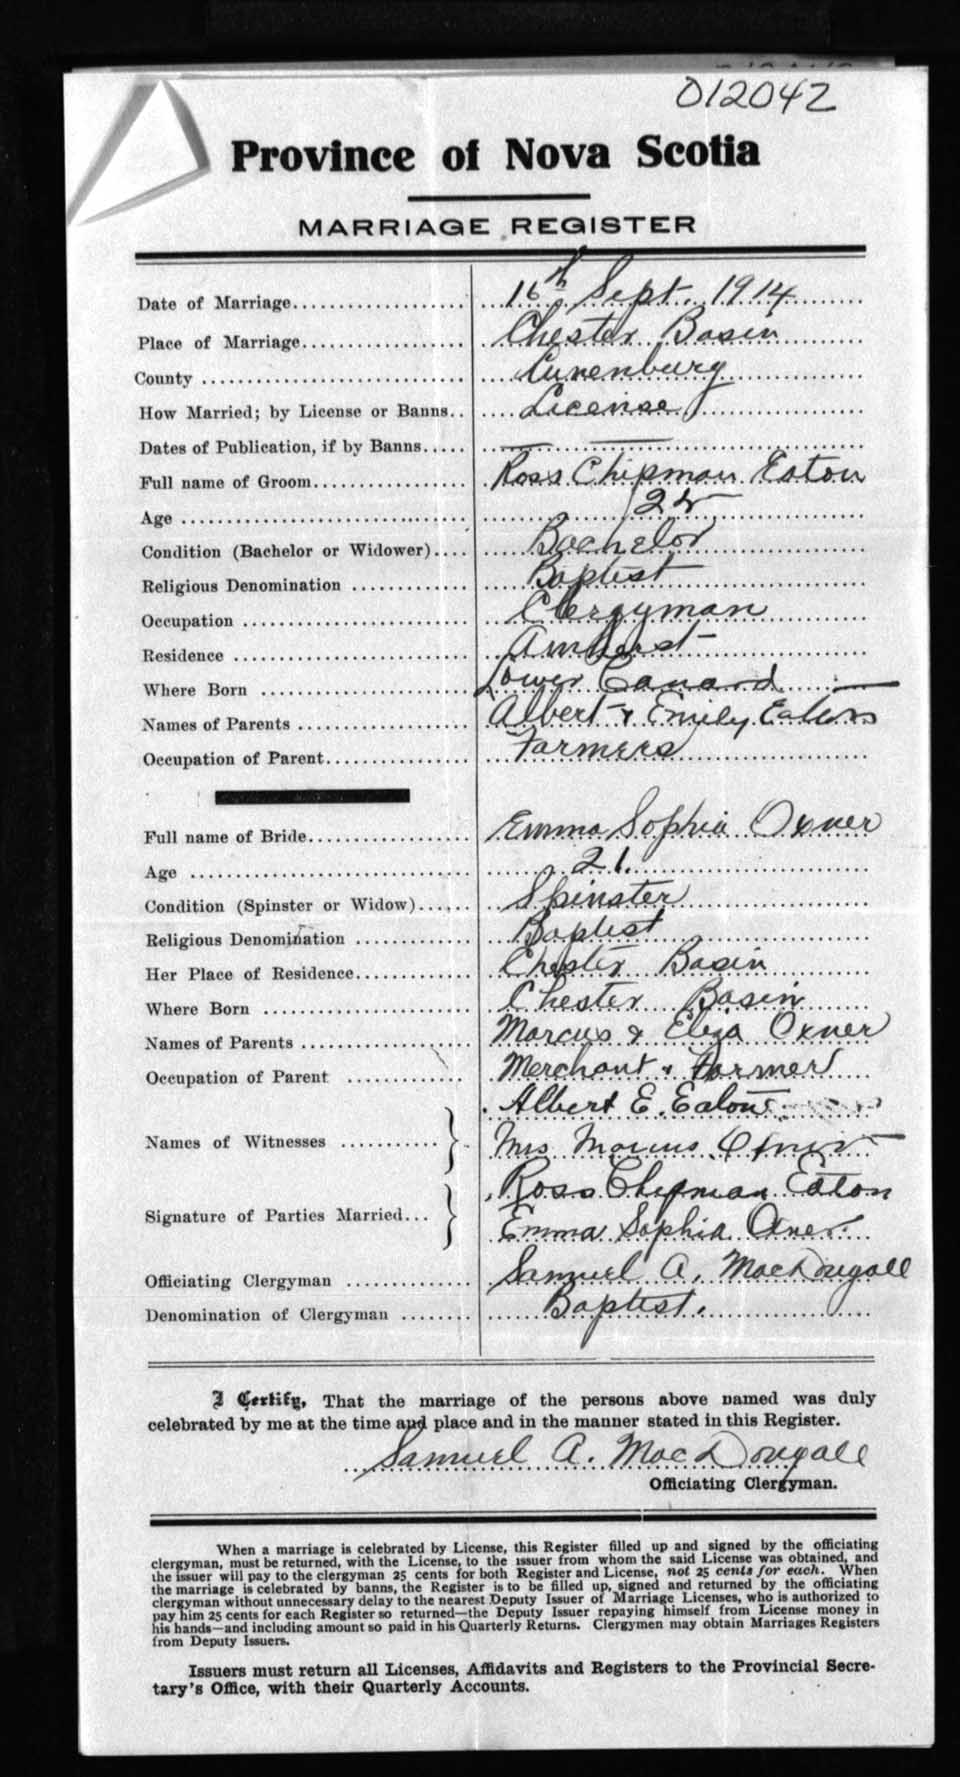 012042
Province of Nova Scotia
MARRIAGE REGISTER
Date of Marriage 16th Sept. 1914
Place of Marriage Chester Basin
County Lunenburg
How Married; by License or Banns License
Dates of Publication, if by Banns — —
Full name of Groom Ross Chipman Eaton
Age
Condition (Bachelor or Widower) Bachelor
Religious Denomination Baptist
Occupation Clergyman
Residence Amherst
Where Born Lower Canard
Names of Parents Albert & Emily Eaton
Occupation of Parent Farmers
Full name of Bride Emma Sophia Oxner
Age 21.
Condition (Spinster or Widow) Spinster
Religious Denomination Baptist
Her Place of Residence Chester Basin
Where Born Chester Basin
Names of Parents Marcus & Eliza Oxner
Occupation of Parent Merchant & Farmer
Albert E. Eaton
Names of Witnesses Mrs Marcus Oxner
Ross Chipman Eaton
Signature of Parties Married Emma Sophia Oxner.
Officiating Clergyman Samuel A. MacDougall
Denomination of Clergyman Baptist.
I Certify, That the marriage of the persons above named was duly
celebrated by me at the time and place and in the manner stated in this Register.
Samuel A. MacDougall
Officiating Clergyman.
When a marriage is celebrated by License, this Register filled up and signed by the officiating
clergyman, must be returned, with the License, to the issuer from whom the said License was obtained, and
the issuer will pay to the clergyman 25 cents for both Register and License, not 25 cents for each. When
the marriage is celebrated by banns, the Register is to be filled up, signed and returned by the officiating
clergyman without unnecessary delay to the nearest Deputy Issuer of Marriage Licenses, who is authorized to
pay him 25 cents for each Register so returned—the Deputy Issuer repaying himself from License money in
his hands—and including amount so paid in his Quarterly Returns. Clergymen may obtain Marriages Registers
from Deputy Issuers.
Issuers must return all Licenses, Affidavits and Registers to the Provincial Secre-
tary's Office, with their Quarterly Accounts.